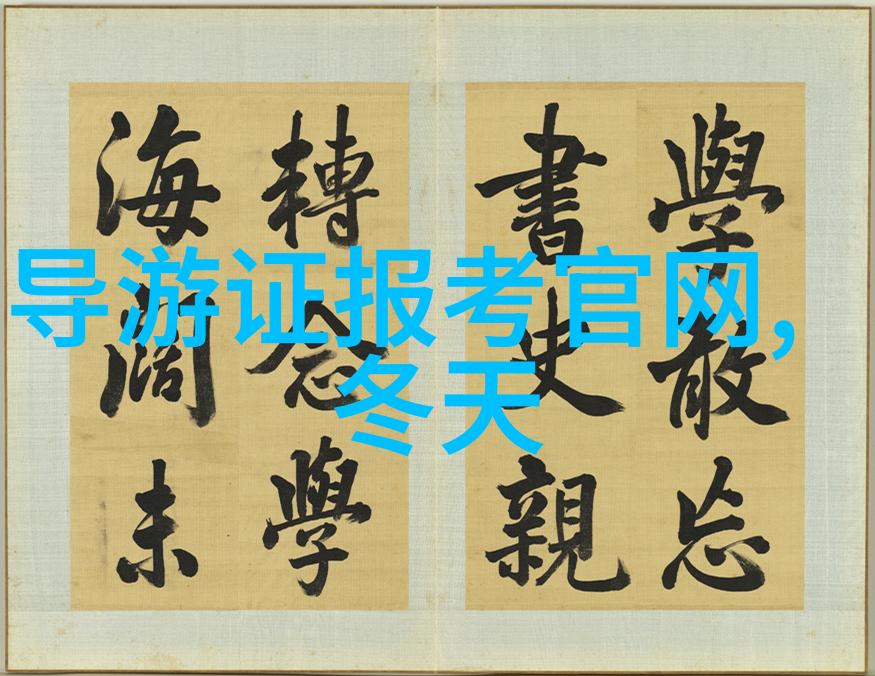 导游证报考官网,
冬天
學敢忘
書史親
轉念學
海闊未